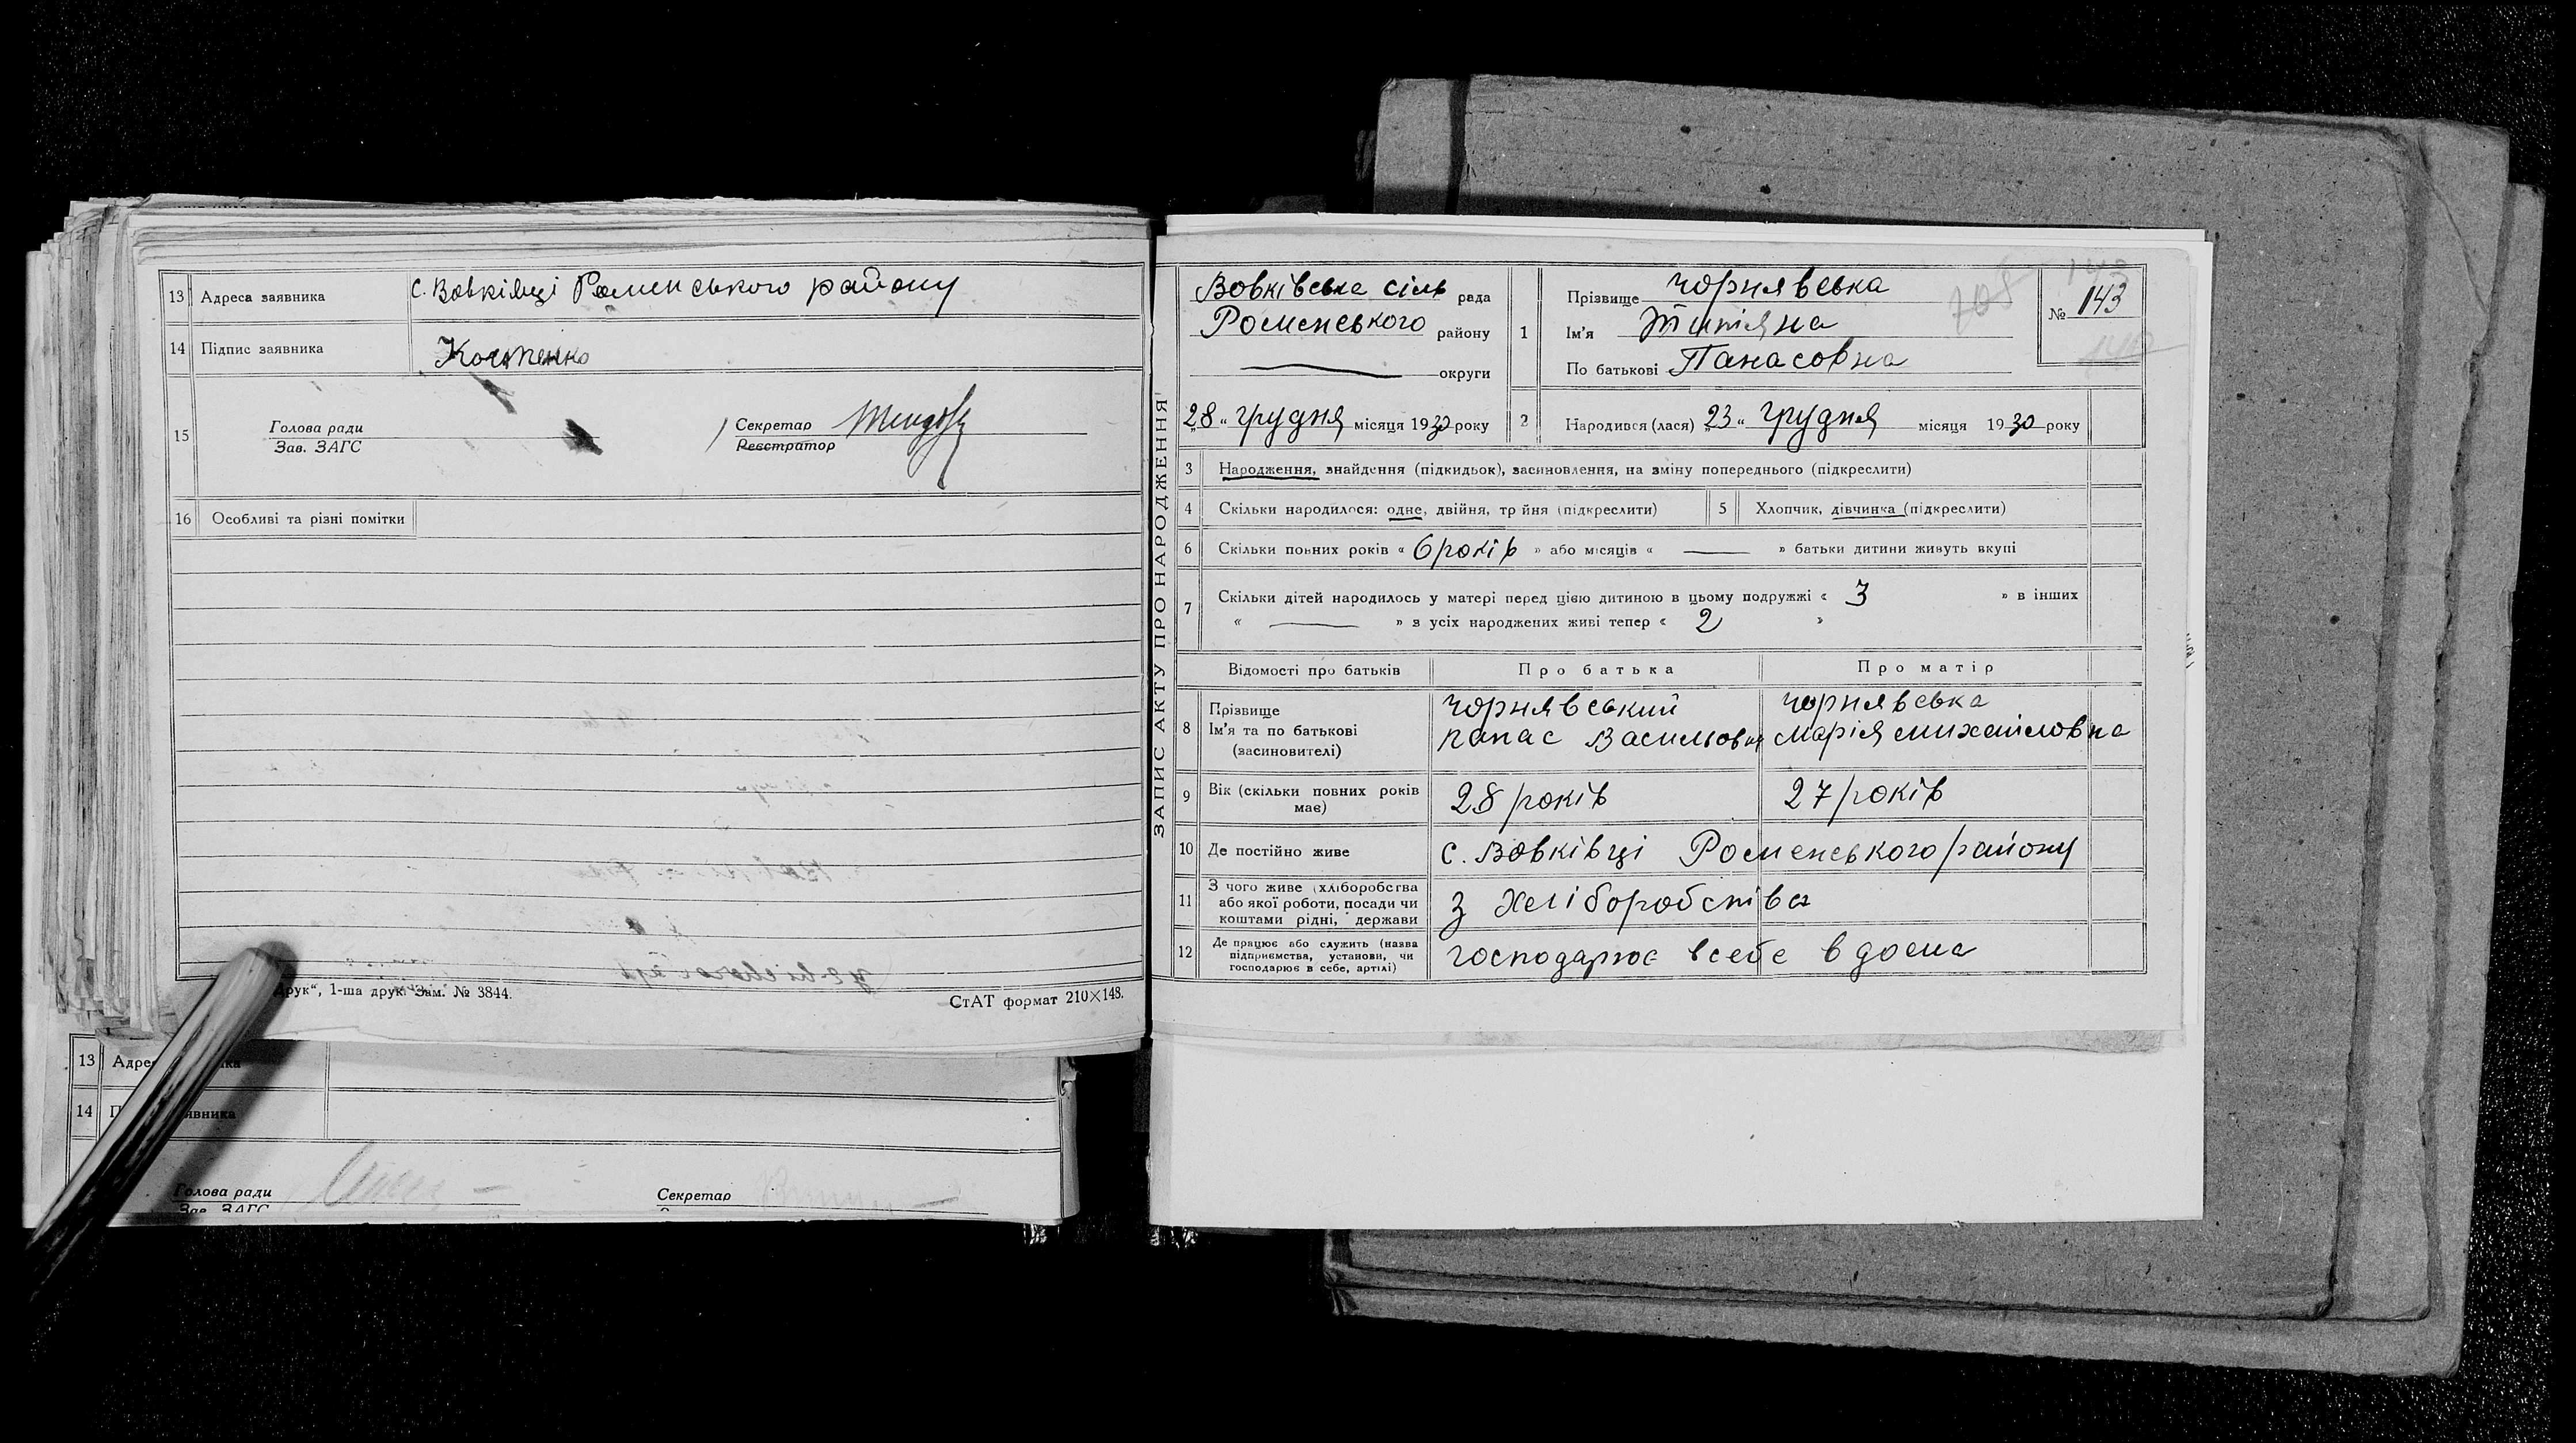 13 Адреса заявника с. Вовківці Роменського району
14 Підпис заявника Костенко
15 Голова ради
Зав. ЗАГС
Секретар
Реєстратор
16 Особливі та різні помітки
Друк“, 1-ша друк. Зам. № 3844.
СтАТ формат 210×148.
13 Адре
14
Голова ради
Зав. ЗАГС
Секретар
ЗАПИС АКТУ ПРО НАРОДЖЕННЯ
Вовківська сіль рада
Роменського району
округи
28 „ грудня місяця 1930 року
1 Прізвище Чорнявська
Ім'я Титіяна
По батькові Панасовна
№ 143
2 Народився (лася) „23„ грудня місяця 1930 року
3 Народження, знайдення (підкидьок), засиновлення, на зміну попереднього (підкреслити)
4 Скільки народилося: одне, двійня, тр йня (підкреслити)
5 Хлопчик, дівчинка (підкреслити)
6 Скільки повних років « 6 років » або місяців « — » батьки дитини живуть вкупі
7 Скільки дітей народилось у матері перед цією дитиною в цьому подружжі « 3 » в інших
« — » з усіх народжених живі тепер « 2 »
Відомості про батьків Про батька Про матір
8 Прізвище
Ім'я та по батькові
(засиновителі)
Чорнявський
Панас Васильов
Чорнявська
Марія Михайловна
9 Вік (скільки повних років має) 28 років 27 років
10 Де постійно живе с. Вовківці Роменського району
11 З чого живе (хліборобства
або якої роботи, посади чи
коштами рідні, держави
з Хліборобства
12 Де працює або служить (назва
підприємства, установи, чи
господарює в себе, артілі)
господарює всебе вдома